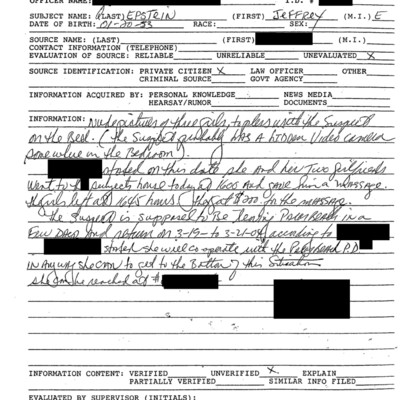 OFFICER NAME: I.D. #
SUBJECT NAME: (LAST) EPSTEIN (FIRST) JEFFREY (M.I.) E
DATE OF BIRTH: 01-20-53 RACE: SEX:
SOURCE NAME: (LAST) (FIRST) (M.I.)
CONTACT INFORMATION (TELEPHONE)
EVALUATION OF SOURCE: RELIABLE UNRELIABLE UNEVALUATED X
SOURCE IDENTIFICATION: PRIVATE CITIZEN X LAW OFFICER OTHER
CRIMINAL SOURCE GOVT AGENCY
INFORMATION ACQUIRED BY: PERSONAL KNOWLEDGE NEWS MEDIA
HEARSAY/RUMOR DOCUMENTS
INFORMATION: Nude pictures of three girls, topless with the Suspect
on the Bed. (the Suspect probably HAS A hidden Video camera
somewhere in the Bedroom).
stated on this date she and her Two girlfriends
went to the subjects house today @ 1600 And gave him a MASSAGE.
the girls left at 1645 hours for the MASSAGE.
the Suspect is supposed to Be leaving Palm Beach in a
Few Days And return on 3-19- to 3-21- according to
stated she will cooperate with the Palm Beach P.D.
IN Anyway she can to get to the Bottom of this Situation
she can be reached at #
INFORMATION CONTENT: VERIFIED UNVERIFIED X EXPLAIN
PARTIALLY VERIFIED SIMILAR INFO FILED
EVALUATED BY SUPERVISOR (INITIALS):